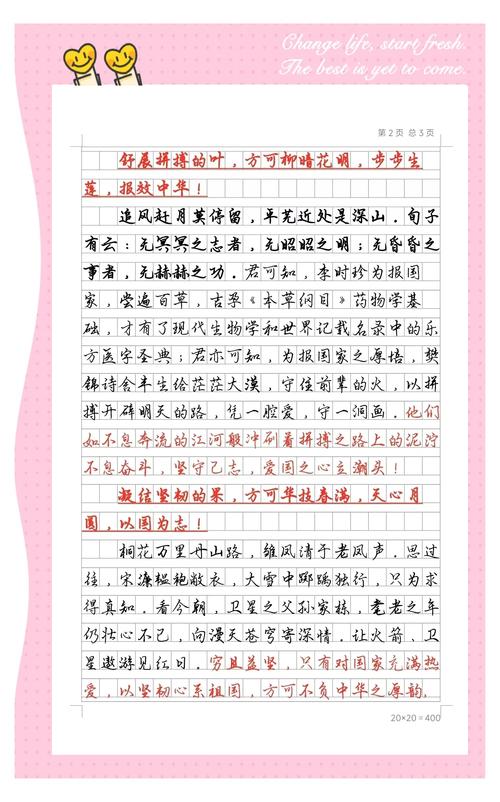 Change life, start fresh.
The best is yet to come.
第2页 总3页
舒展拼搏的叶，方可柳暗花明，步步生
莲，报效中华！
追风赶月莫停留，平芜近处是深山．旬子
有云：无冥冥之志者，无昭昭之明；无昏昏之
事者，无赫赫之功．君可知，李时珍为报国
家，尝遍百草，吉孕《本草纲目》药物学基
础，才有了现代生物学和世界记载名录中的乐
方医字圣典；君亦可知，为报国家之厚培，樊
锦诗舍半生给茫茫大漠，守住前辈的火，以拼
搏开辟明天的路，凭一腔爱，守一洞画．他们
如不息奔流的江河般冲刷着拼搏之路上的泥泞
不息奋斗，坚守己志，爱国之心立潮头！
凝结坚韧的果，方可华枝春满，天心月
圆，以国为志！
桐花万里丹山路，雏凤清于老凤声．思过
往，宋濂缊袍敝衣，大雪中踯躅独行，只为求
得真知．看今朝，卫星之父孙家栋，耄老之年
仍壮心不已，向漫天苍穹寄深情．让火箭、卫
星遨游见红日．穷且益坚，只有对国家充满热
爱，以坚韧心系祖国，方可不负中华之厚韵．
20×20=400